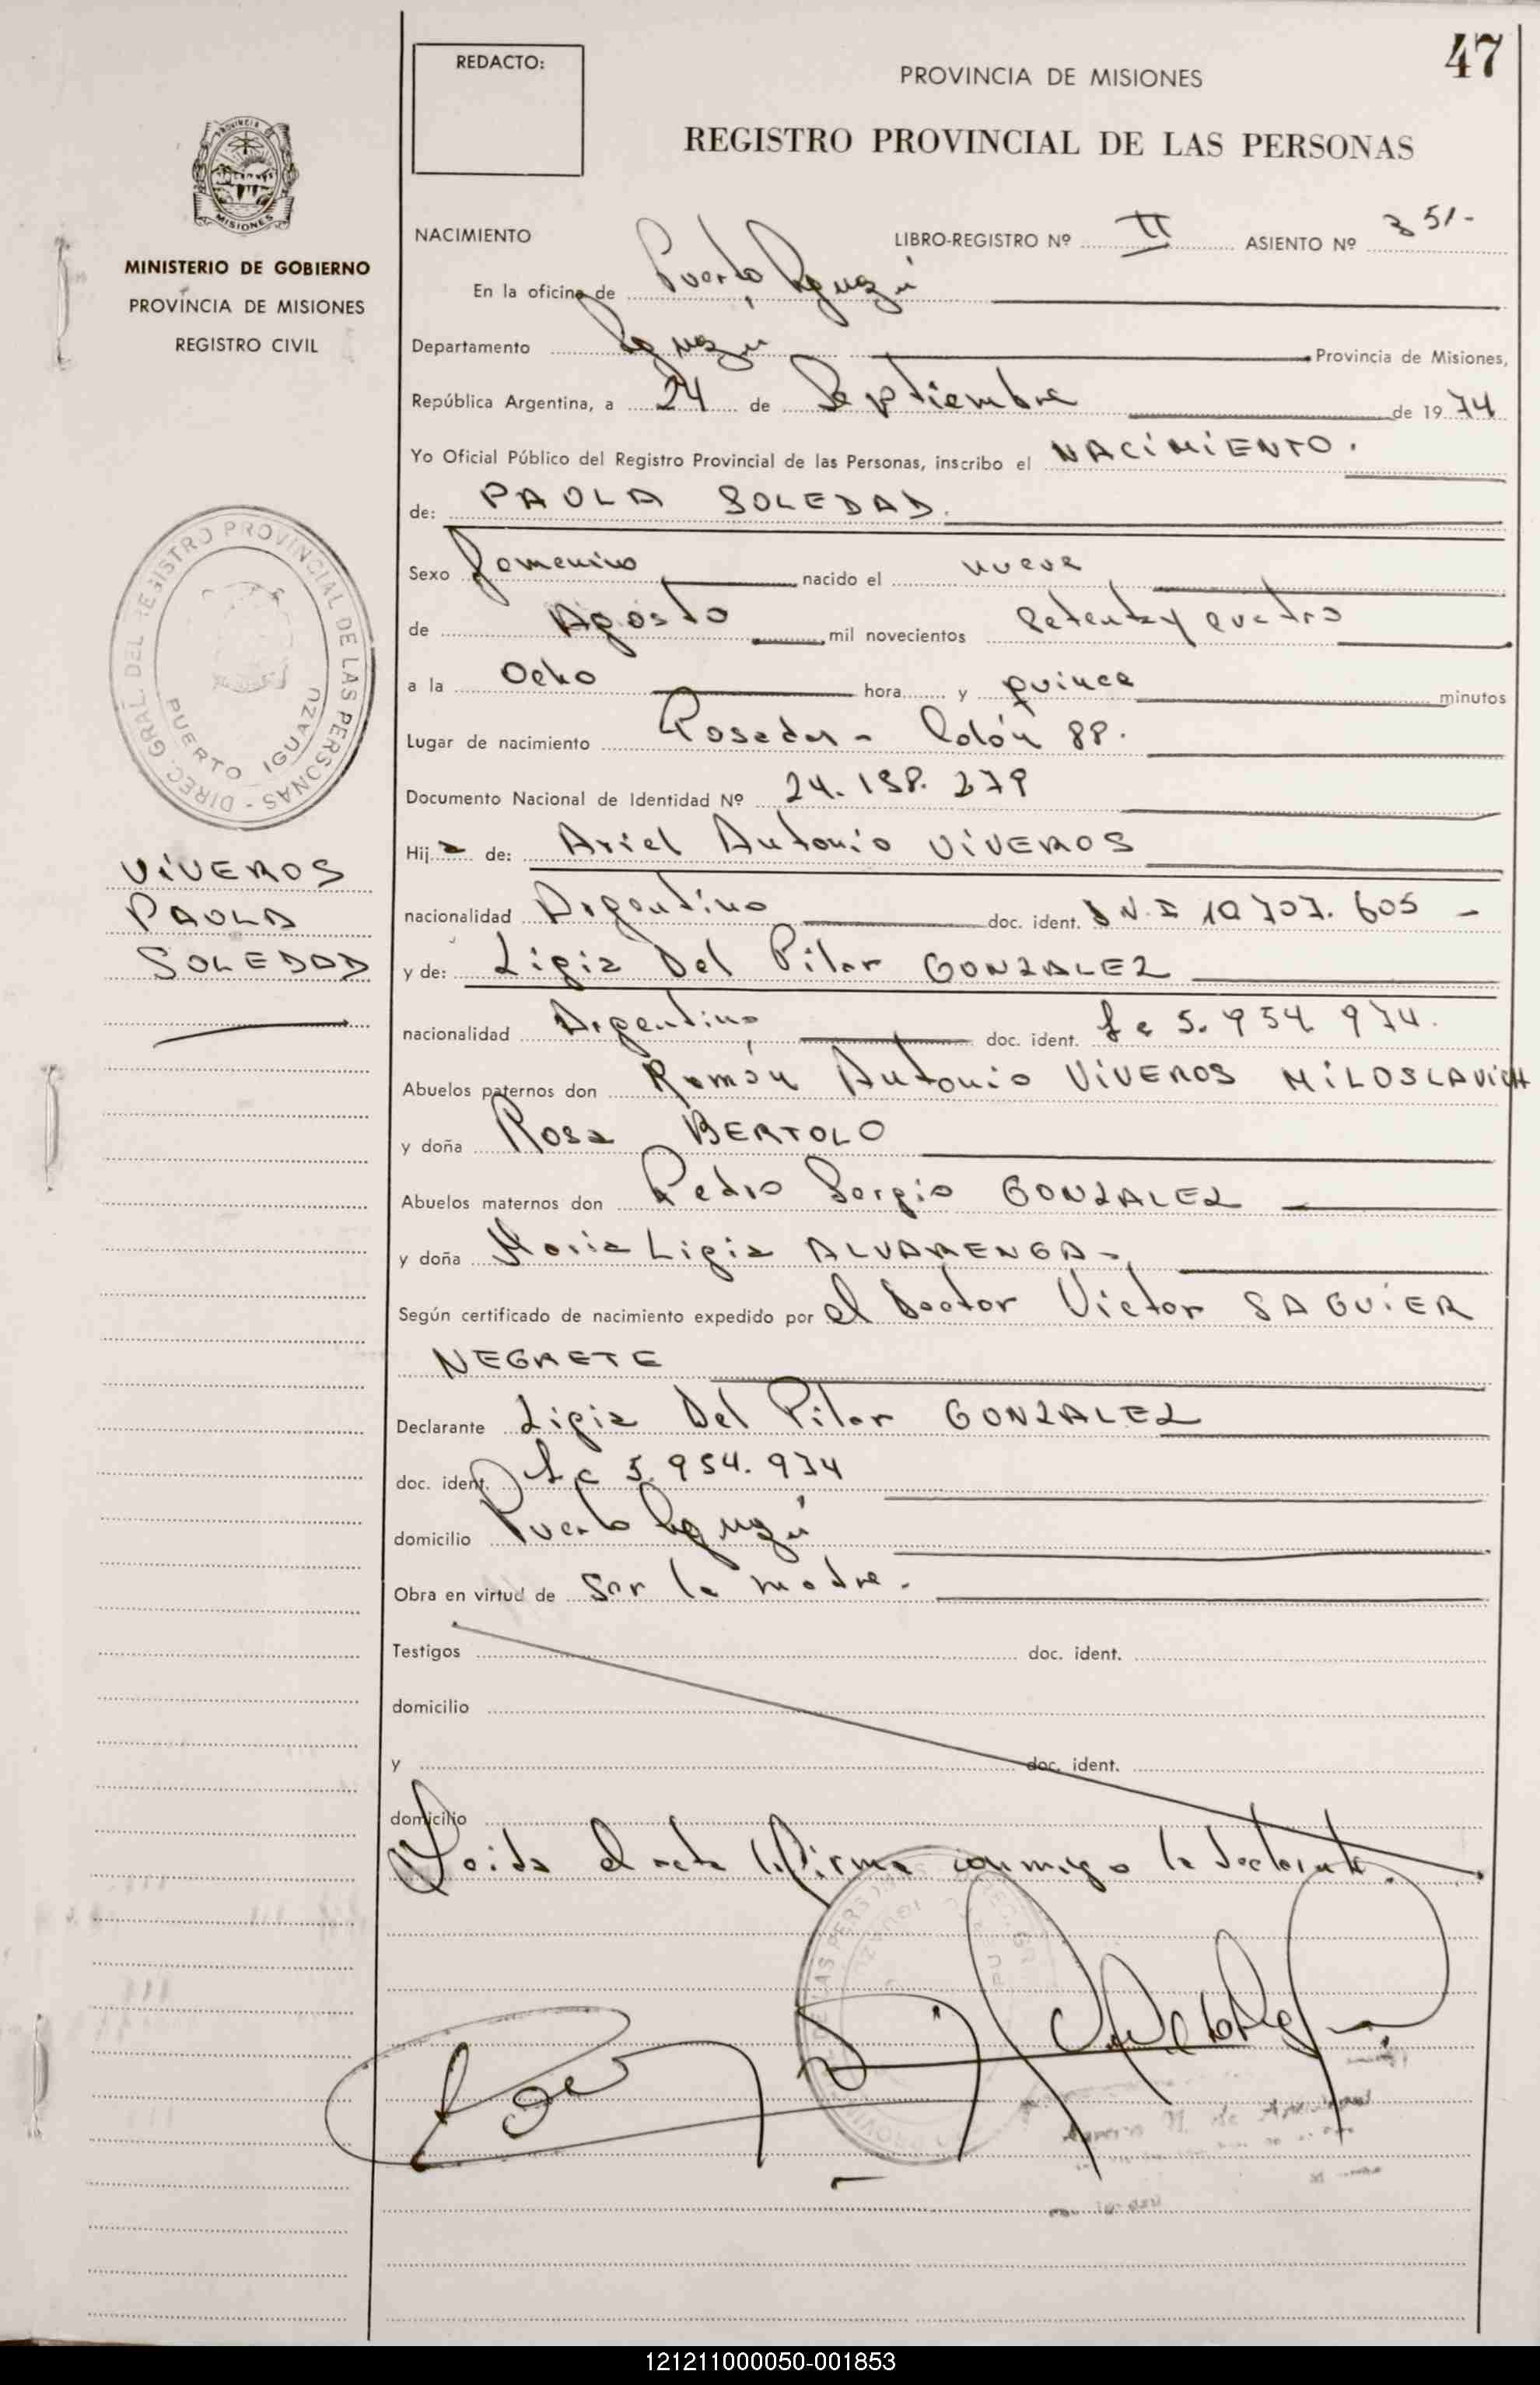 47
REDACTO:
PROVINCIA DE MISIONES
REGISTRO PROVINCIAL DE LAS PERSONAS
PROVINCIA DE MISIONES
MINISTERIO DE GOBIERNO
PROVINCIA DE MISIONES
REGISTRO CIVIL
NACIMIENTO LIBRO-REGISTRO Nº II ASIENTO Nº 351-
En la oficina de Puerto Iguazú
Departamento Iguazú Provincia de Misiones,
República Argentina, a 24 de Septiembre de 1974
Yo Oficial Público del Registro Provincial de las Personas, inscribo el NACIMIENTO.
de: PAOLA SOLEDAD.
Sexo Femenino nacido el nueve
de Agosto mil novecientos setenta y cuatro
a la Ocho hora y quince minutos
Lugar de nacimiento Posadas - Colón
Documento Nacional de Identidad Nº 24.
Hija de: Ariel Antonio VIVEROS
nacionalidad Argentino doc. ident. D N.I 10.707.605 -
y de: Ligia Del Pilar GONZALEZ
nacionalidad Argentina doc. ident. L c 5.954.974.
Abuelos paternos don Ramón Antonio VIVEROS MILOSLAVICH
y doña Rosa BERTOLO
Abuelos maternos don Pedro Sergio GONZALEZ
y doña Maria Ligia ALVARENGA-
Según certificado de nacimiento expedido por el Doctor Victor SAGUIER
NEGRETE
Declarante Ligia Del Pilar GONZALEZ
doc. ident. L c 5.954.974
domicilio Puerto Iguazú
Obra en virtud de ser la madre.
Testigos doc. ident.
domicilio
y doc. ident.
domicilio
Leida el acta la firma conmigo la declarante.
DIREC. GRAL. DEL REGISTRO PROVINCIAL DE LAS PERSONAS -
PUERTO IGUAZU
VIVEROS
PAOLA
SOLEDAD
121211000050-001853